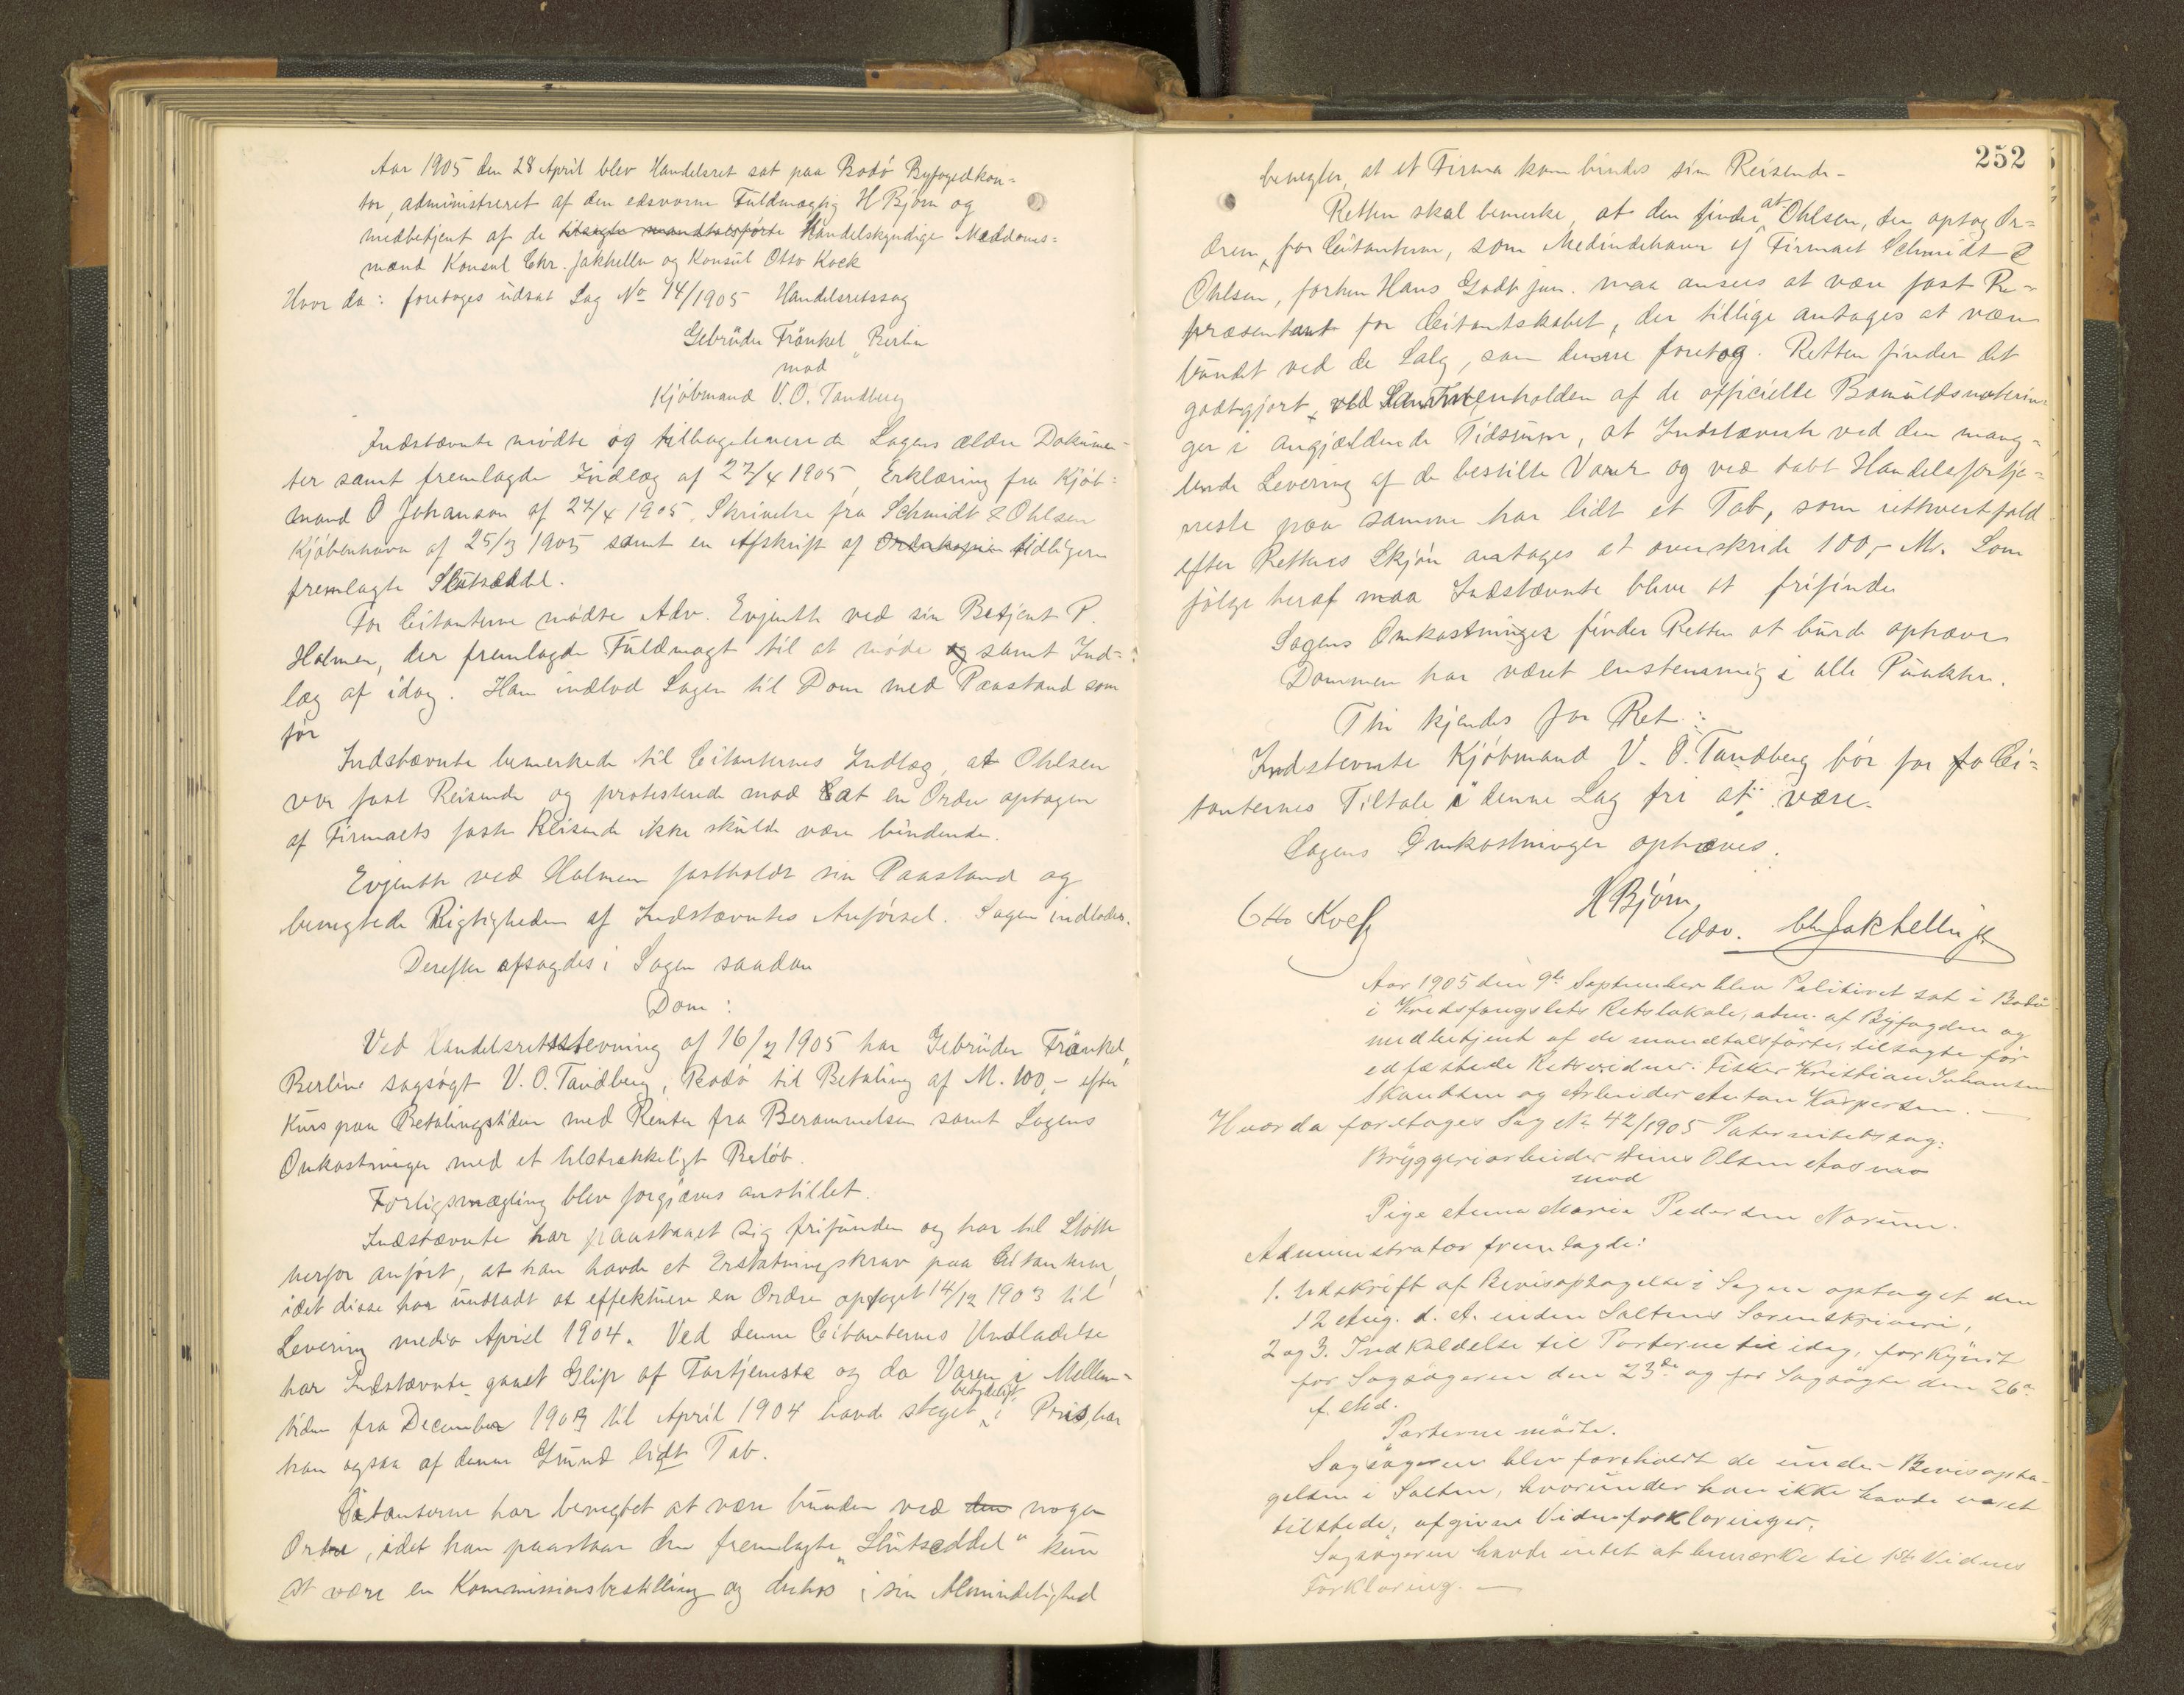 Aar 1905 den 28 April blev Handelsret sat paa Bodø Byfogedkon=
tor, administreret af den edsvorne Fuldmægtig H Bjørn og
medbetjent af de tilsagte mandtalsførte Handelskyndige Meddoms=
mænd Konsul Chr. Jakhelln og Konsul Otto Koch
Hvor da: foretoges udsat Sag No 14/1905 Handelsretssag
Gebrüder Fränkel, Berlin
mod
Kjøbmand V. O. Tandberg
Indstævnte mødte og tilbageleverede Sagens ældre Dokumen-
ter samt fremlagde Indlæg af 27/4 1905, Erklæring fra Kjøb=
mand O Johanson af 27/4 1905, Skrivelse fra Schmidt & Ohlsen
Kjøbenhavn af 25/3 1905 samt en Afskrift af Ordrekopien tidligere
fremlagte Slutseddel.
For Citanterne mødte Adv. Evjenth ved sin Betjent P.
Holmen, der fremlagde Fuldmagt til at møde og samt Ind=
læg af idag. Han indlod Sagen til Dom med Paastand som
før
Indstævnte bemerkede til Citanternes Indlæg, at Ohlsen
var fast Reisende og protesterede mod at en Ordre optagen
af Firmaets faste Reisende ikke skulde være bindende.
Evjenth ved Holmen fastholdt sin Paastand og
benegtede Rigtigheden af Indstævntes Anførsel. Sagen indlodes.
Derefter afsagdes i Sagen saadan
Dom:
Ved Handelsretsstevning af 16/2 1905 har Gebrüder Fränkel,
Berlin sagsøgt V. O. Tandberg, Bodø til Betaling af M. 100,- efter
Kurs paa Betalingstiden med Renter fra Berammelsen samt Sagens
Omkostninger med et tilstrækkeligt Beløb.
Forligsmægling blev forgjæves anstillet.
Indstævnte har paastaaet sig frifunden og har til Støtte
herfor anført, at han havde et Erstatningskrav paa Citanterne,
idet disse har undladt at effektuere en Ordre optaget 14/12 1903 til
Levering medio April 1904. Ved denne Citanternes Undladelse
har Indstævnte gaaet Glip af Fortjeneste og da Varen i Mellem-
tiden fra December 1903 til April 1904 havde steget betydeligt i Pris, har
han ogsaa af denne Grund lidt Tab.
Citanterne har benegtet at være bunden ved den nogen
Ordre, idet han paastaar den fremlagte "Slutseddel" kun
at være en Kommissionsbestilling og derhos i sin Almindelighed
252
benegter, at et Firma kan bindes sin Reisende-
Retten skal bemerke, at den finder at Ohlsen, der optog Or=
dren, for Citanterne, som Medindehaver af Firmaet Schmidt &
Ohlsen, forhen Hans Godt jun. maa ansees at være fast Re=
præsentant for Citantskabet, der tillige antages at være
bundet ved de Salg, som denne foretog. Retten finder det
godtgjort, ved Sammenholden af de officielle Bomuldsnoterin=
ger i angjældende Tidsrum, at Indstævnte ved den mang=
lende Levering af de bestilte Varer og ved tabt Handelsfortje=
neste paa samme har lidt et Tab, som iethvertfald
efter Rettens Skjøn antages at overskride 100,- M. Som
følge heraf maa Indstævnte blive at frifinde
Sagens Omkostninger finder Retten at burde ophæve
Dommen har været enstemmig i alle Punkter.
Thi kjendes for Ret:
Indstevnte Kjøbmand V. O. Tandberg bør for Ci=
tanternes Tiltale i denne Sag fri at være.
Sagens Omkostninger ophæves.
Otto Koch
H Bjørn
edsv.
Chr Jakhelln jr
Aar 1905 den 9de September blev Politiret sat i Bodø
i Kredsfængslets Retslokale, adm. af Byfogden og
medbetjent af de mandtalsførte, tilsagte før
edfæstede Retsvidner: Fisker Kristian Johansen
Skandsen og Arbeider Anton Kaspersen. —
Hvorda foretoges Sag No 42/1905 Paternitetssag:
Bryggeriarbeider Olsen
mod
Pige Anna Maria Pedersen Norum.
Administrator fremlagde:
1. Udskrift af Bevisoptagelse i Sagen optaget den
12 Aug. d. A. inden Saltens Sorenskriveri,
2 og 3. Indkaldelse til Parterne til idag, forkyndt
for Sagsøgeren den 23de og for Sagsøgte den 26de
f. Md.
Parterne mødte.
Sagsøgeren blev foreholdt de under Bevisopta-
gelsen i Salten, hvorunder han ikke havde været
tilstede, afgivne Vidneforklaringer.
Sagsøgeren havde intet at bemærke til 1ste Vidnes
Forklaring. —